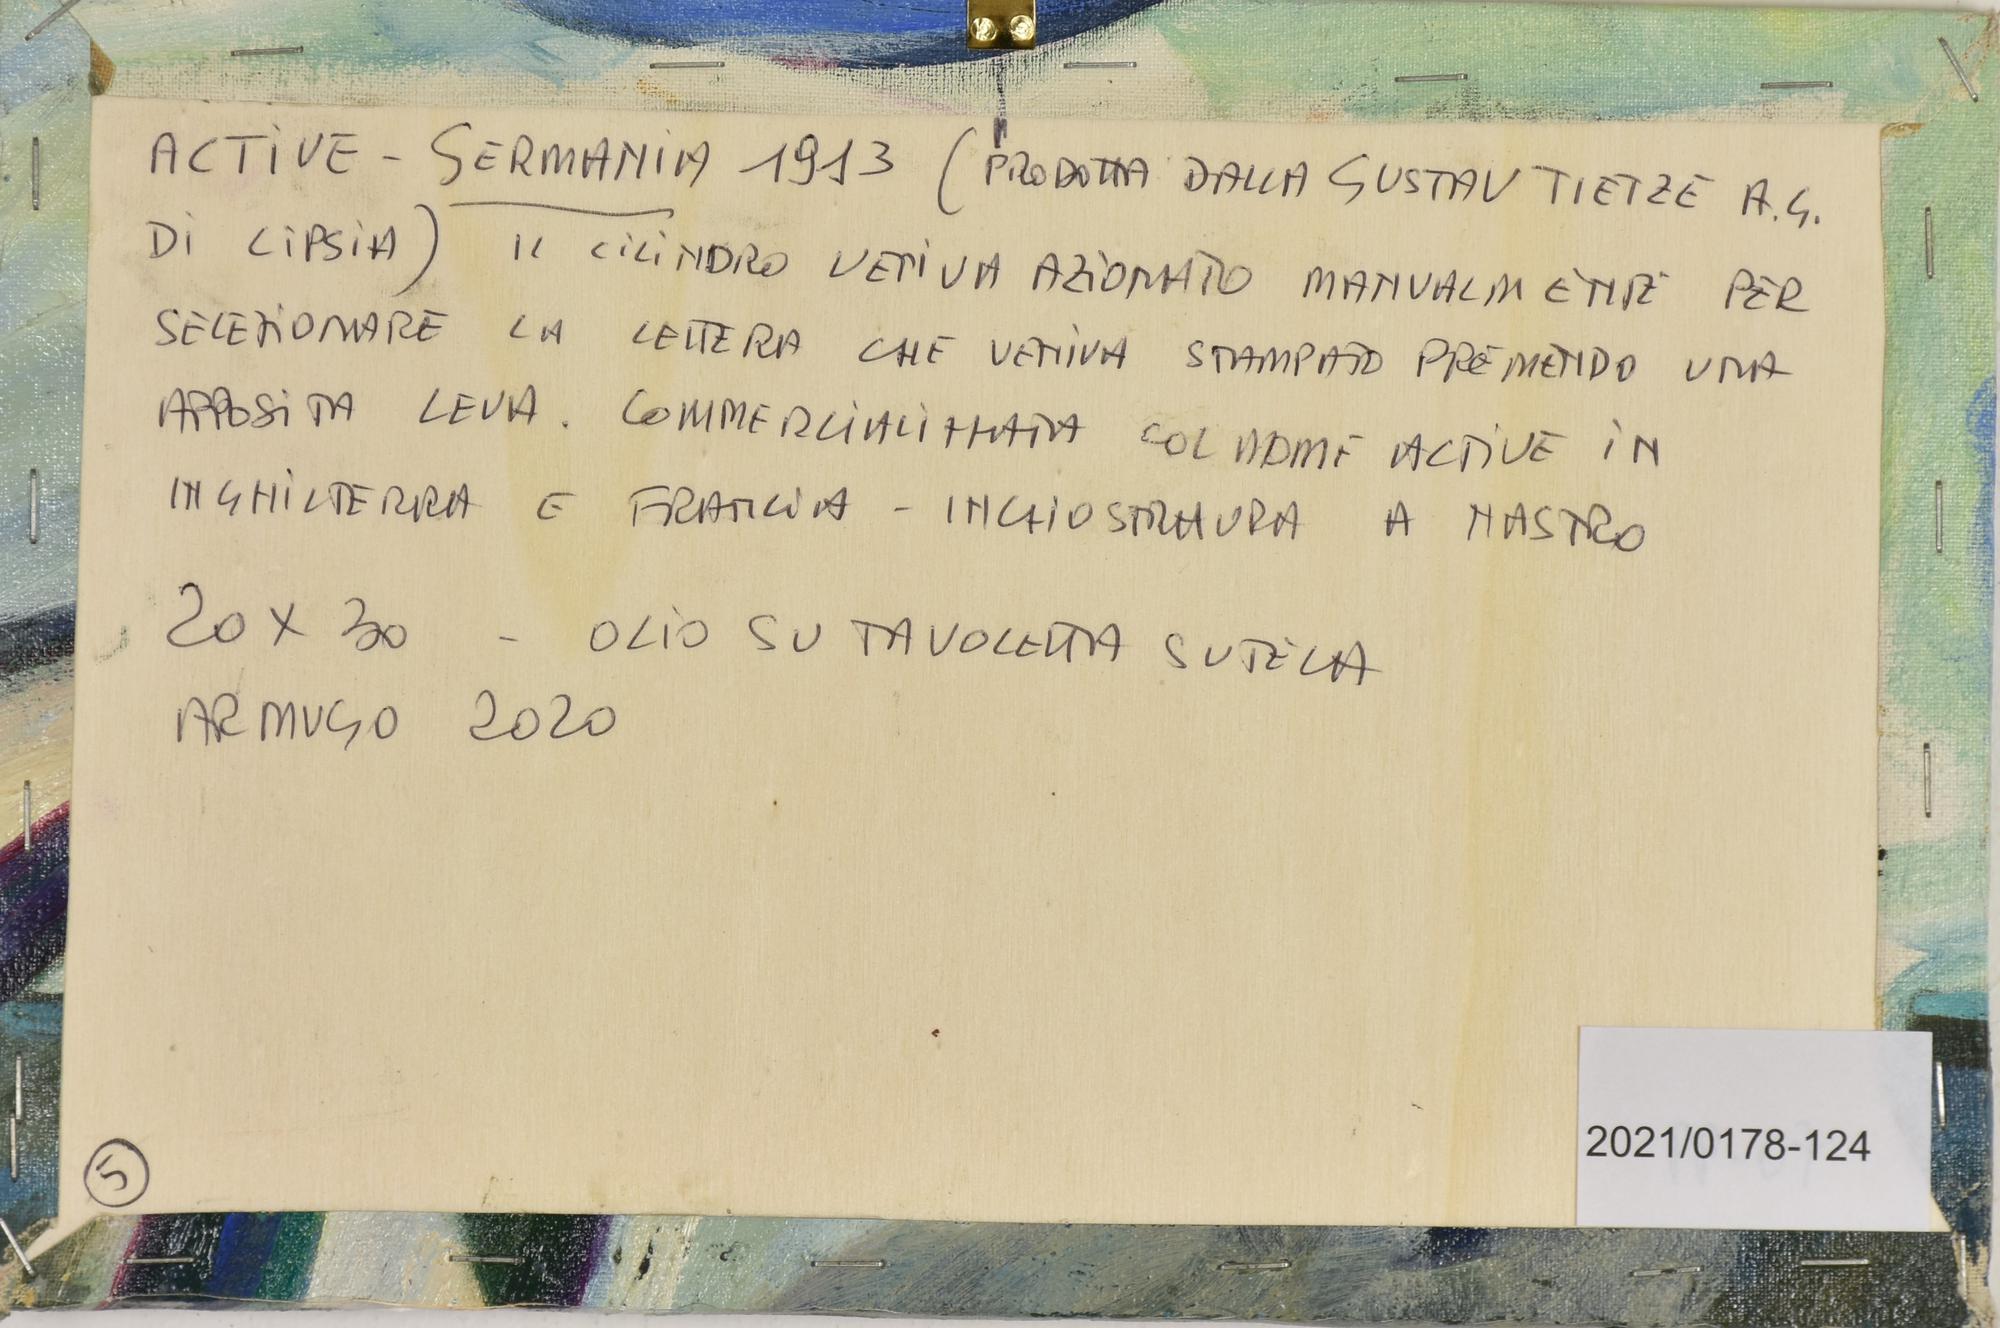 ACTIVE - GERMANIA 1913 (PRODOTTA DALLA GUSTAV TIETZE A.G.
DI LIPSIA) IL CILINDRO VENIVA AZIONATO MANUALMENTE PER
SELEZIONARE LA LETTERA CHE VENIVA STAMPATO PREMENDO UNA
APPOSITA LEVA. COMMERCIALIZZATA COL NOME ACTIVE IN
INGHILTERRA E FRANCIA - INCHIOSTRAURA A NASTRO
20 X 30 - OLIO SU TAVOLETTA SU TELA
ARMUGO 2020
5
2021/0178-124